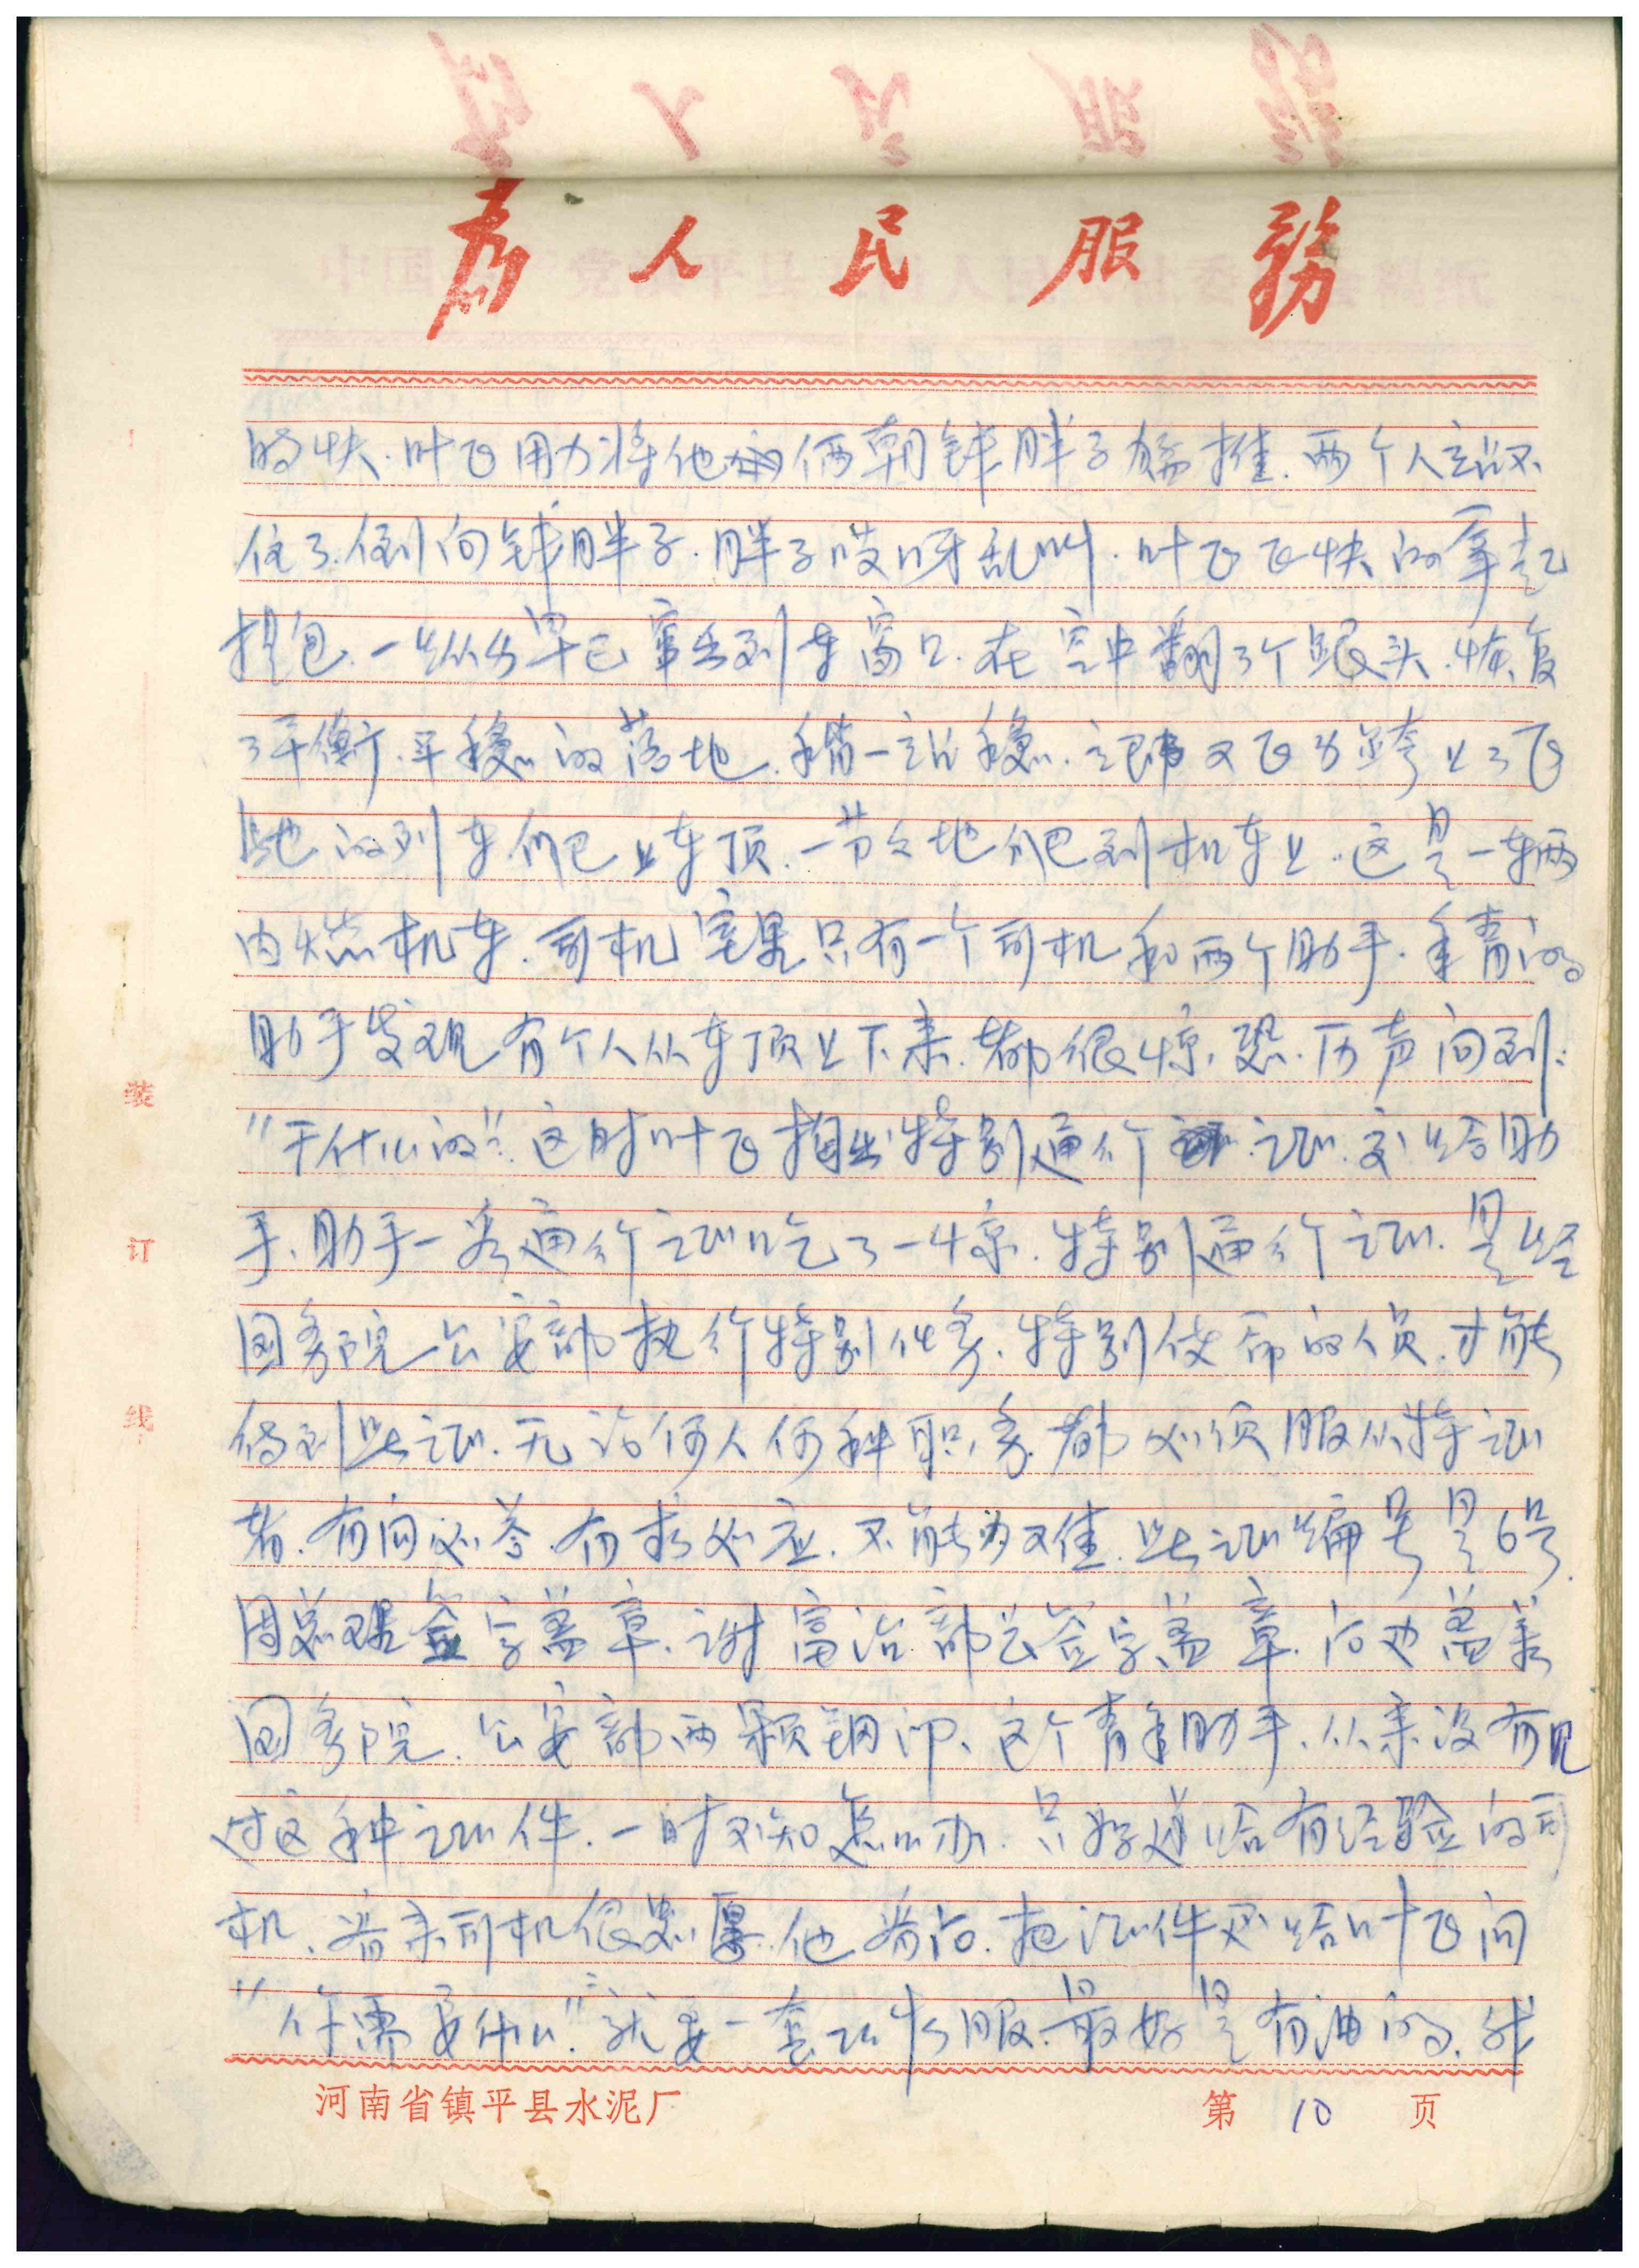 为人民服務
的快.叶飞用力将他俩朝钱胖子猛推.两个人站不
住了.倒向钱胖子.胖子哎呀乱叫.叶飞飞快的拿起
提包.一纵身早已窜到车窗口.在空中翻了个跟头.恢复
了平衡.平稳的落地.稍一站稳.又飞身跨上了飞
驰的列车.爬上车顶.一节々地爬到机车上.这是一辆
内燃机车.司机室里只有一个司机和两个助手.年青的
助手发现有个人从车顶上下来.都很惊恐.厉声问到:
"干什么的"?这时叶飞掏出特别通行证.交给助
手、助手一看通行证吃了一惊.特别通行证.是经
国务院公安部执行特别任务.特别使命的人员.才能
得到此证.无论何人何种职务.都必须服从特证
者.有问必答.有求必应.不能为难.此证编号是6号.
周总理签字盖章.谢富治部长签字盖章.后边盖着
国务院.公安部两颗钢印、这个青年助手.从来没有见
过这种证件.一时不知怎么办.只好递给有经验的司
机、看来司机很.他看后.把证件还给叶飞问
"你需要什么".就要一套工作服.最好是有油的.我
装
订
线
河南省镇平县水泥厂
第 10 页